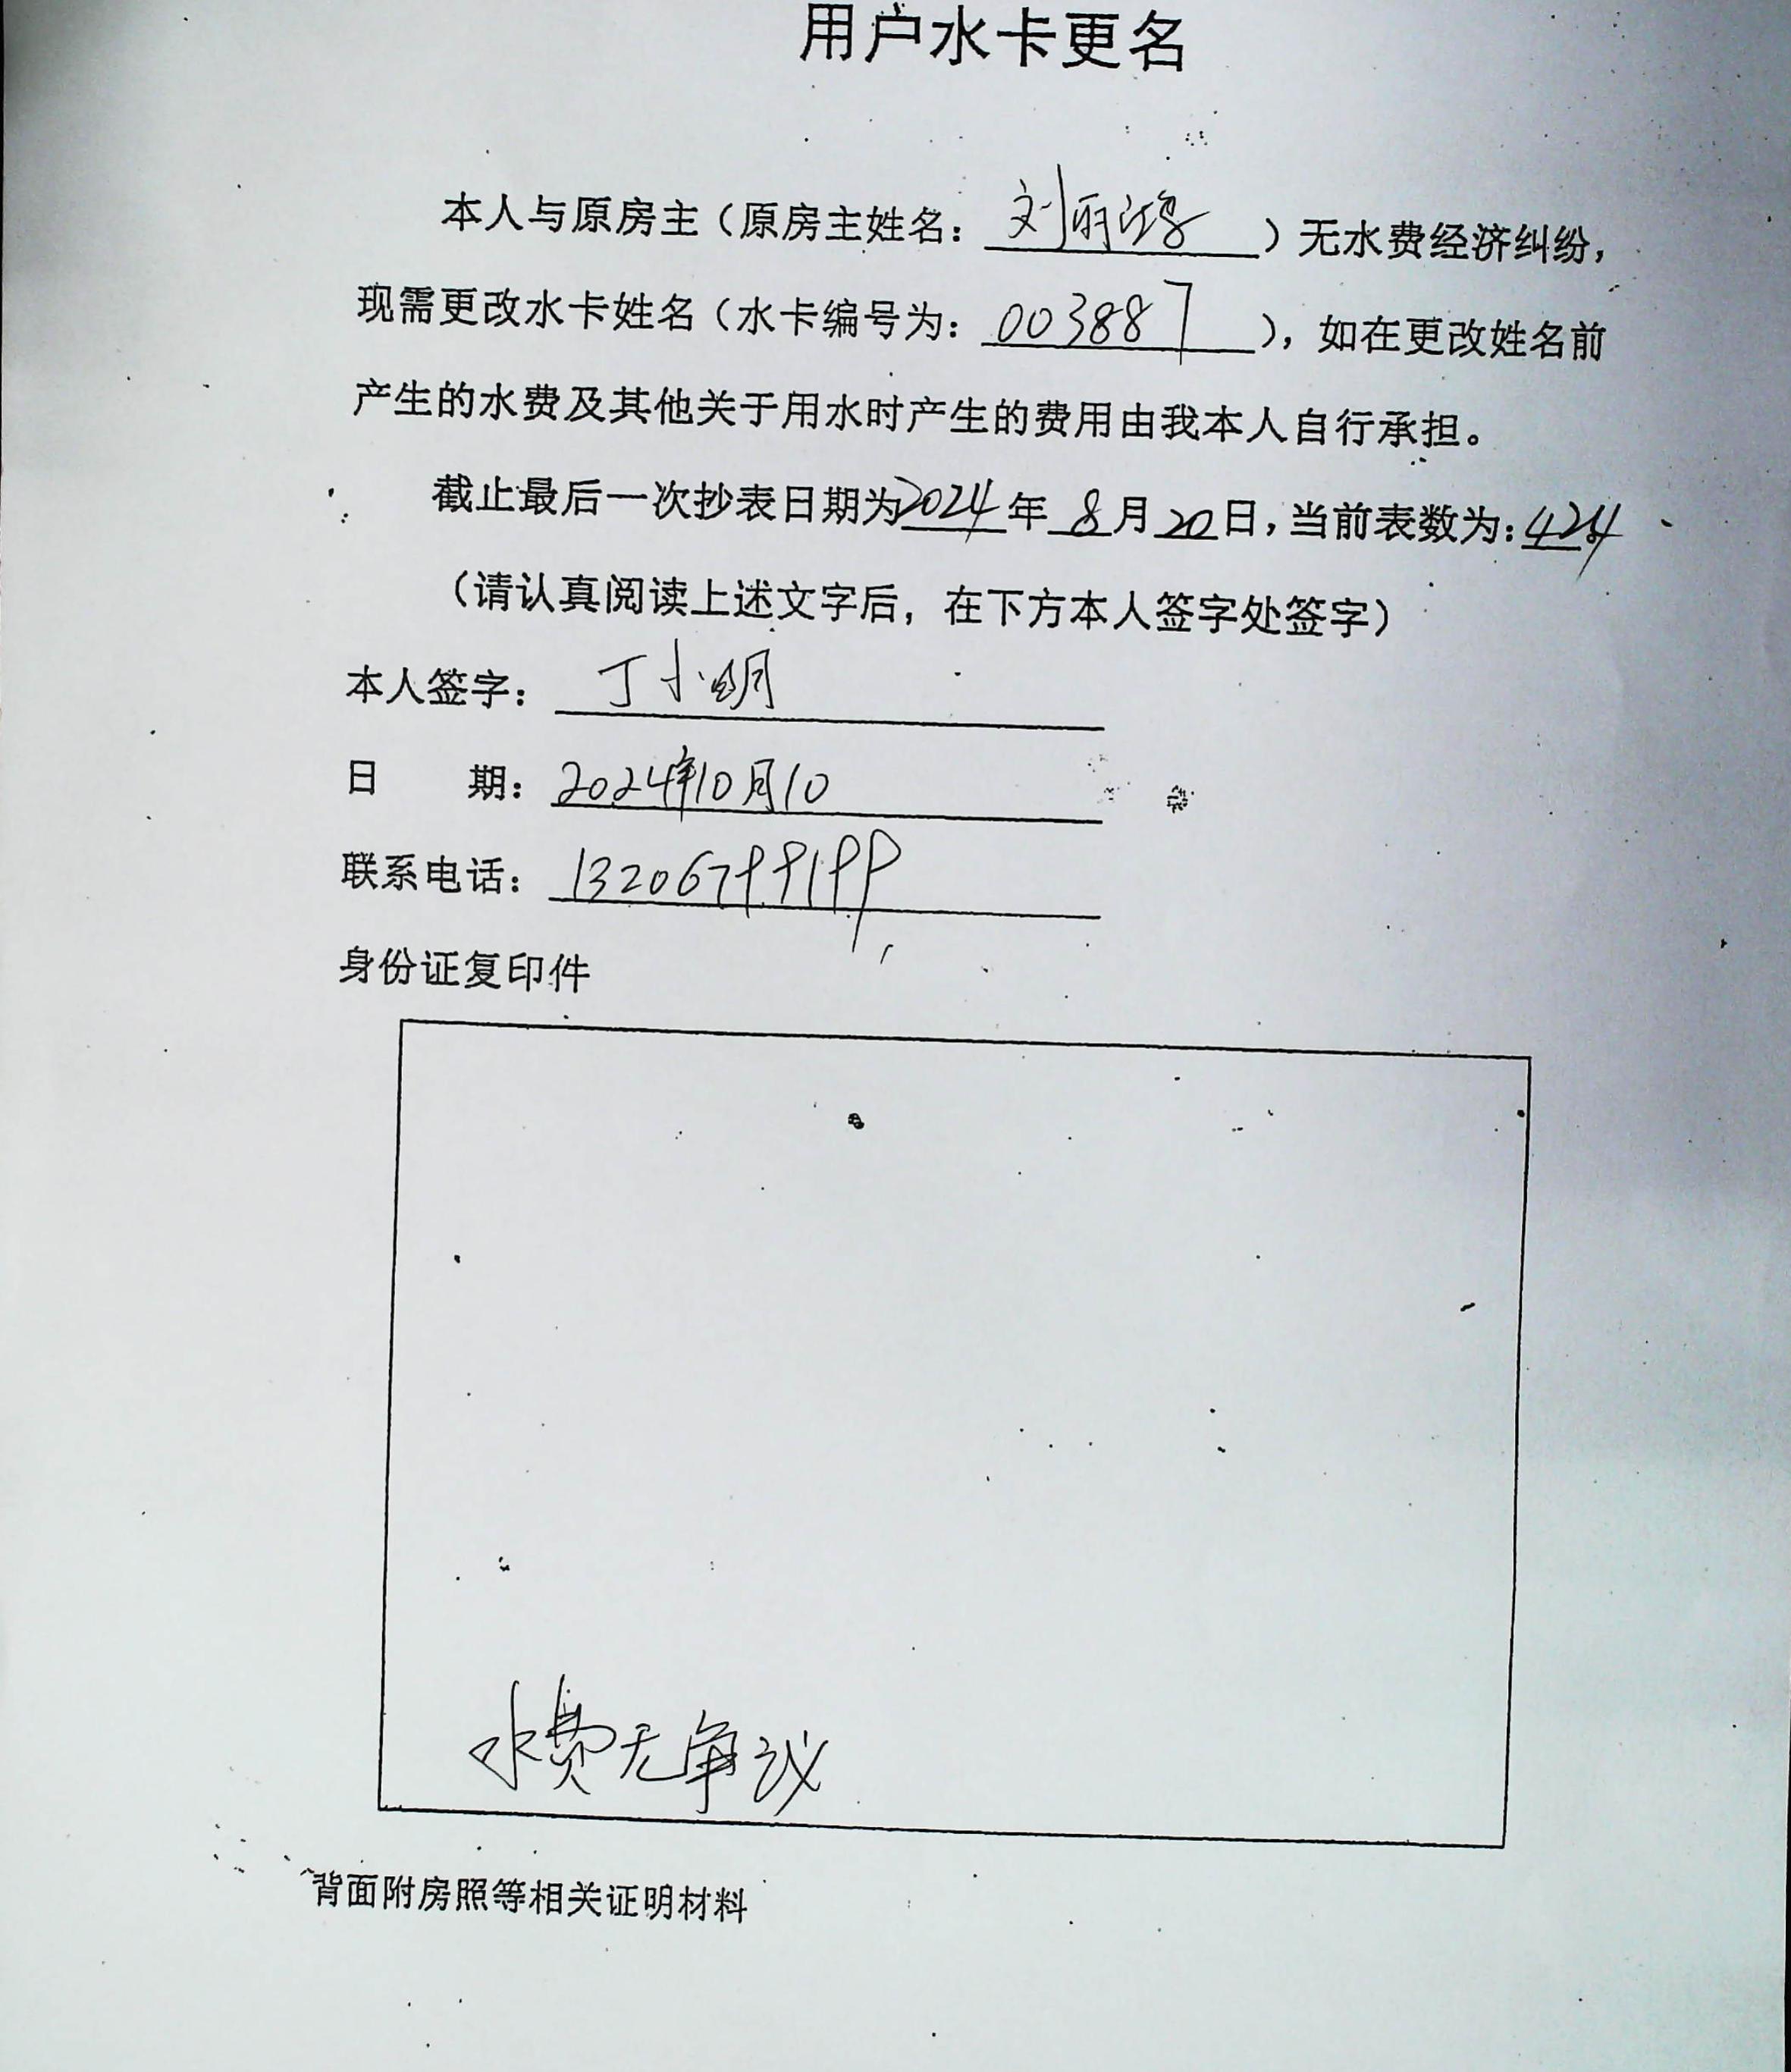 用户水卡更名
本人与原房主（原房主姓名：刘丽）无水费经济纠纷，
现需更改水卡姓名（水卡编号为：003887），如在更改姓名前
产生的水费及其他关于用水时产生的费用由我本人自行承担。
截止最后一次抄表日期为2024年8月20日，当前表数为：424
（请认真阅读上述文字后，在下方本人签字处签字）
本人签字：丁小明
日 期：2024年10月10
联系电话：13206799199
身份证复印件
水费无争议
背面附房照等相关证明材料